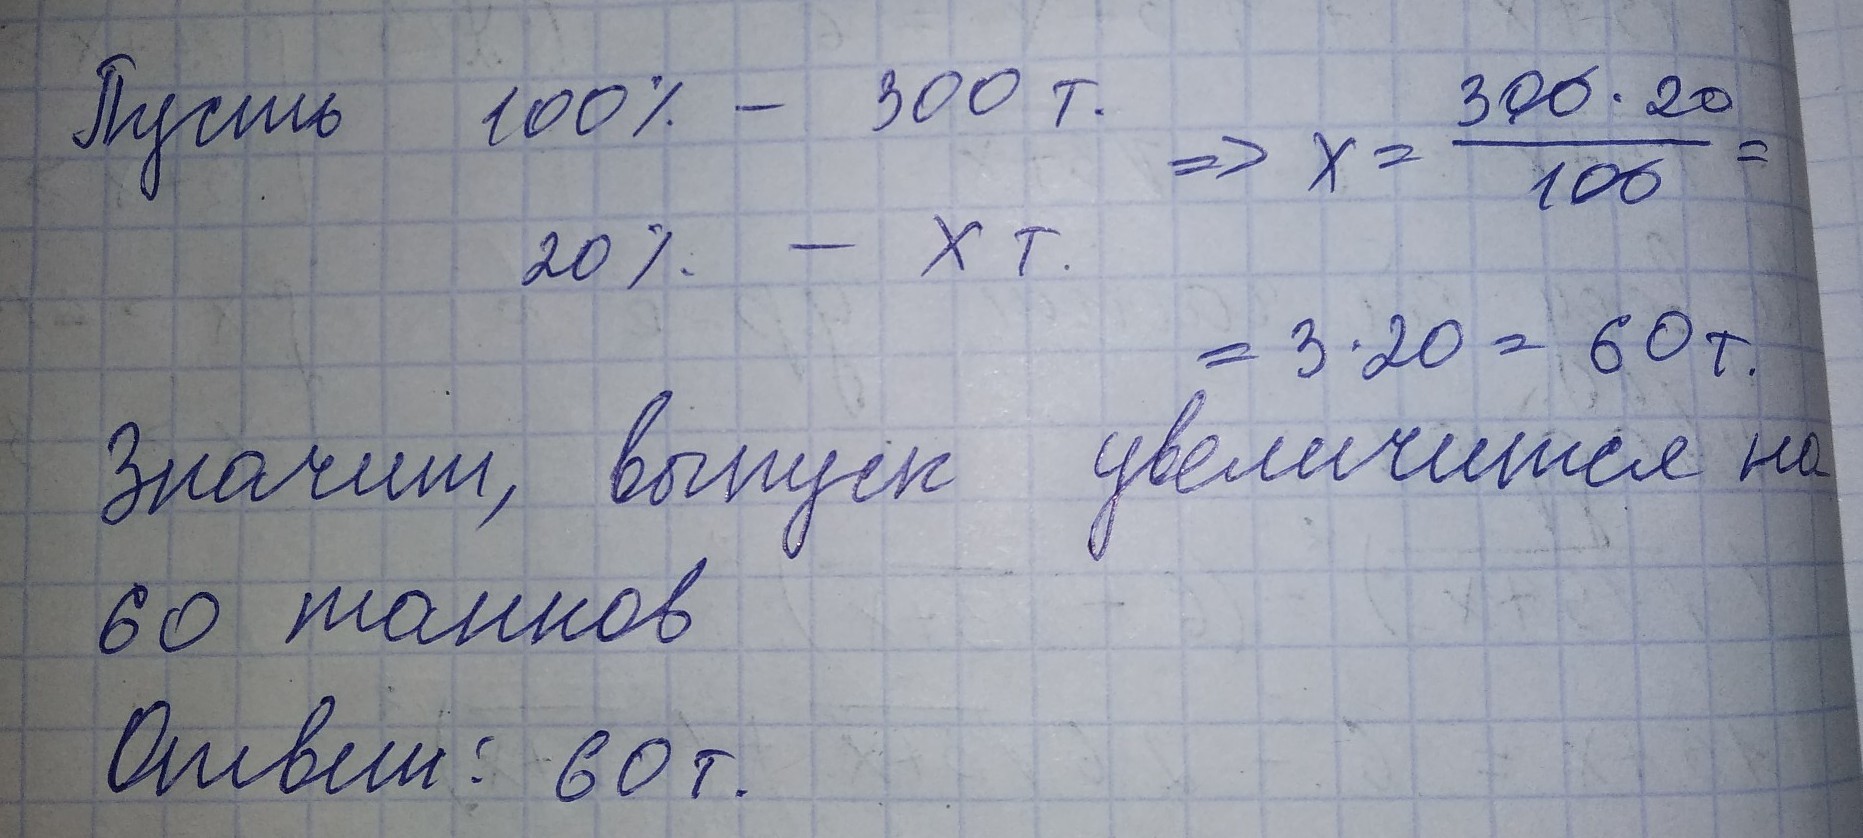 Пусть 100% – 300 т.
20% – х т.
=> х = 300 · 20 / 100 =
= 3 · 20 = 60 т.
Значит, выпуск увеличится на
60 танков
Ответ: 60 т.